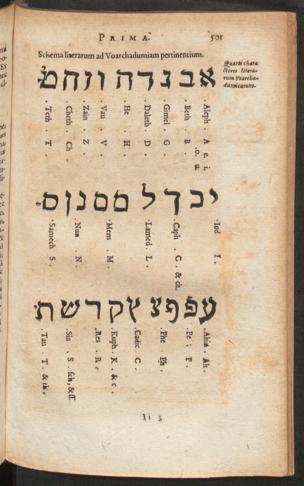 PRIMA. 501
Schema literarum ad Voarchadumiam pertinentium.
Quarti chara
cteres litera-
rum Voarcha-
dumicarum.
אבגדה וזחט
Aleph . A e i. o. u.
Beth . B
Gimel . G
Daleth . D
He . H
Vau . V
Zain . Z
Cheth . Ch
Teth . T
יכךל מםנןס
Iod I.
Caph . C . & ch
Lamed . L
Mem . M
Nun . N
Samech S
עפףצץקרשת
Pe . P
Phe Ph
Cadic C
Kuph . K . & c
Res . R
Sin . S . sch, & ss
Tau . T . & th
Ii 3